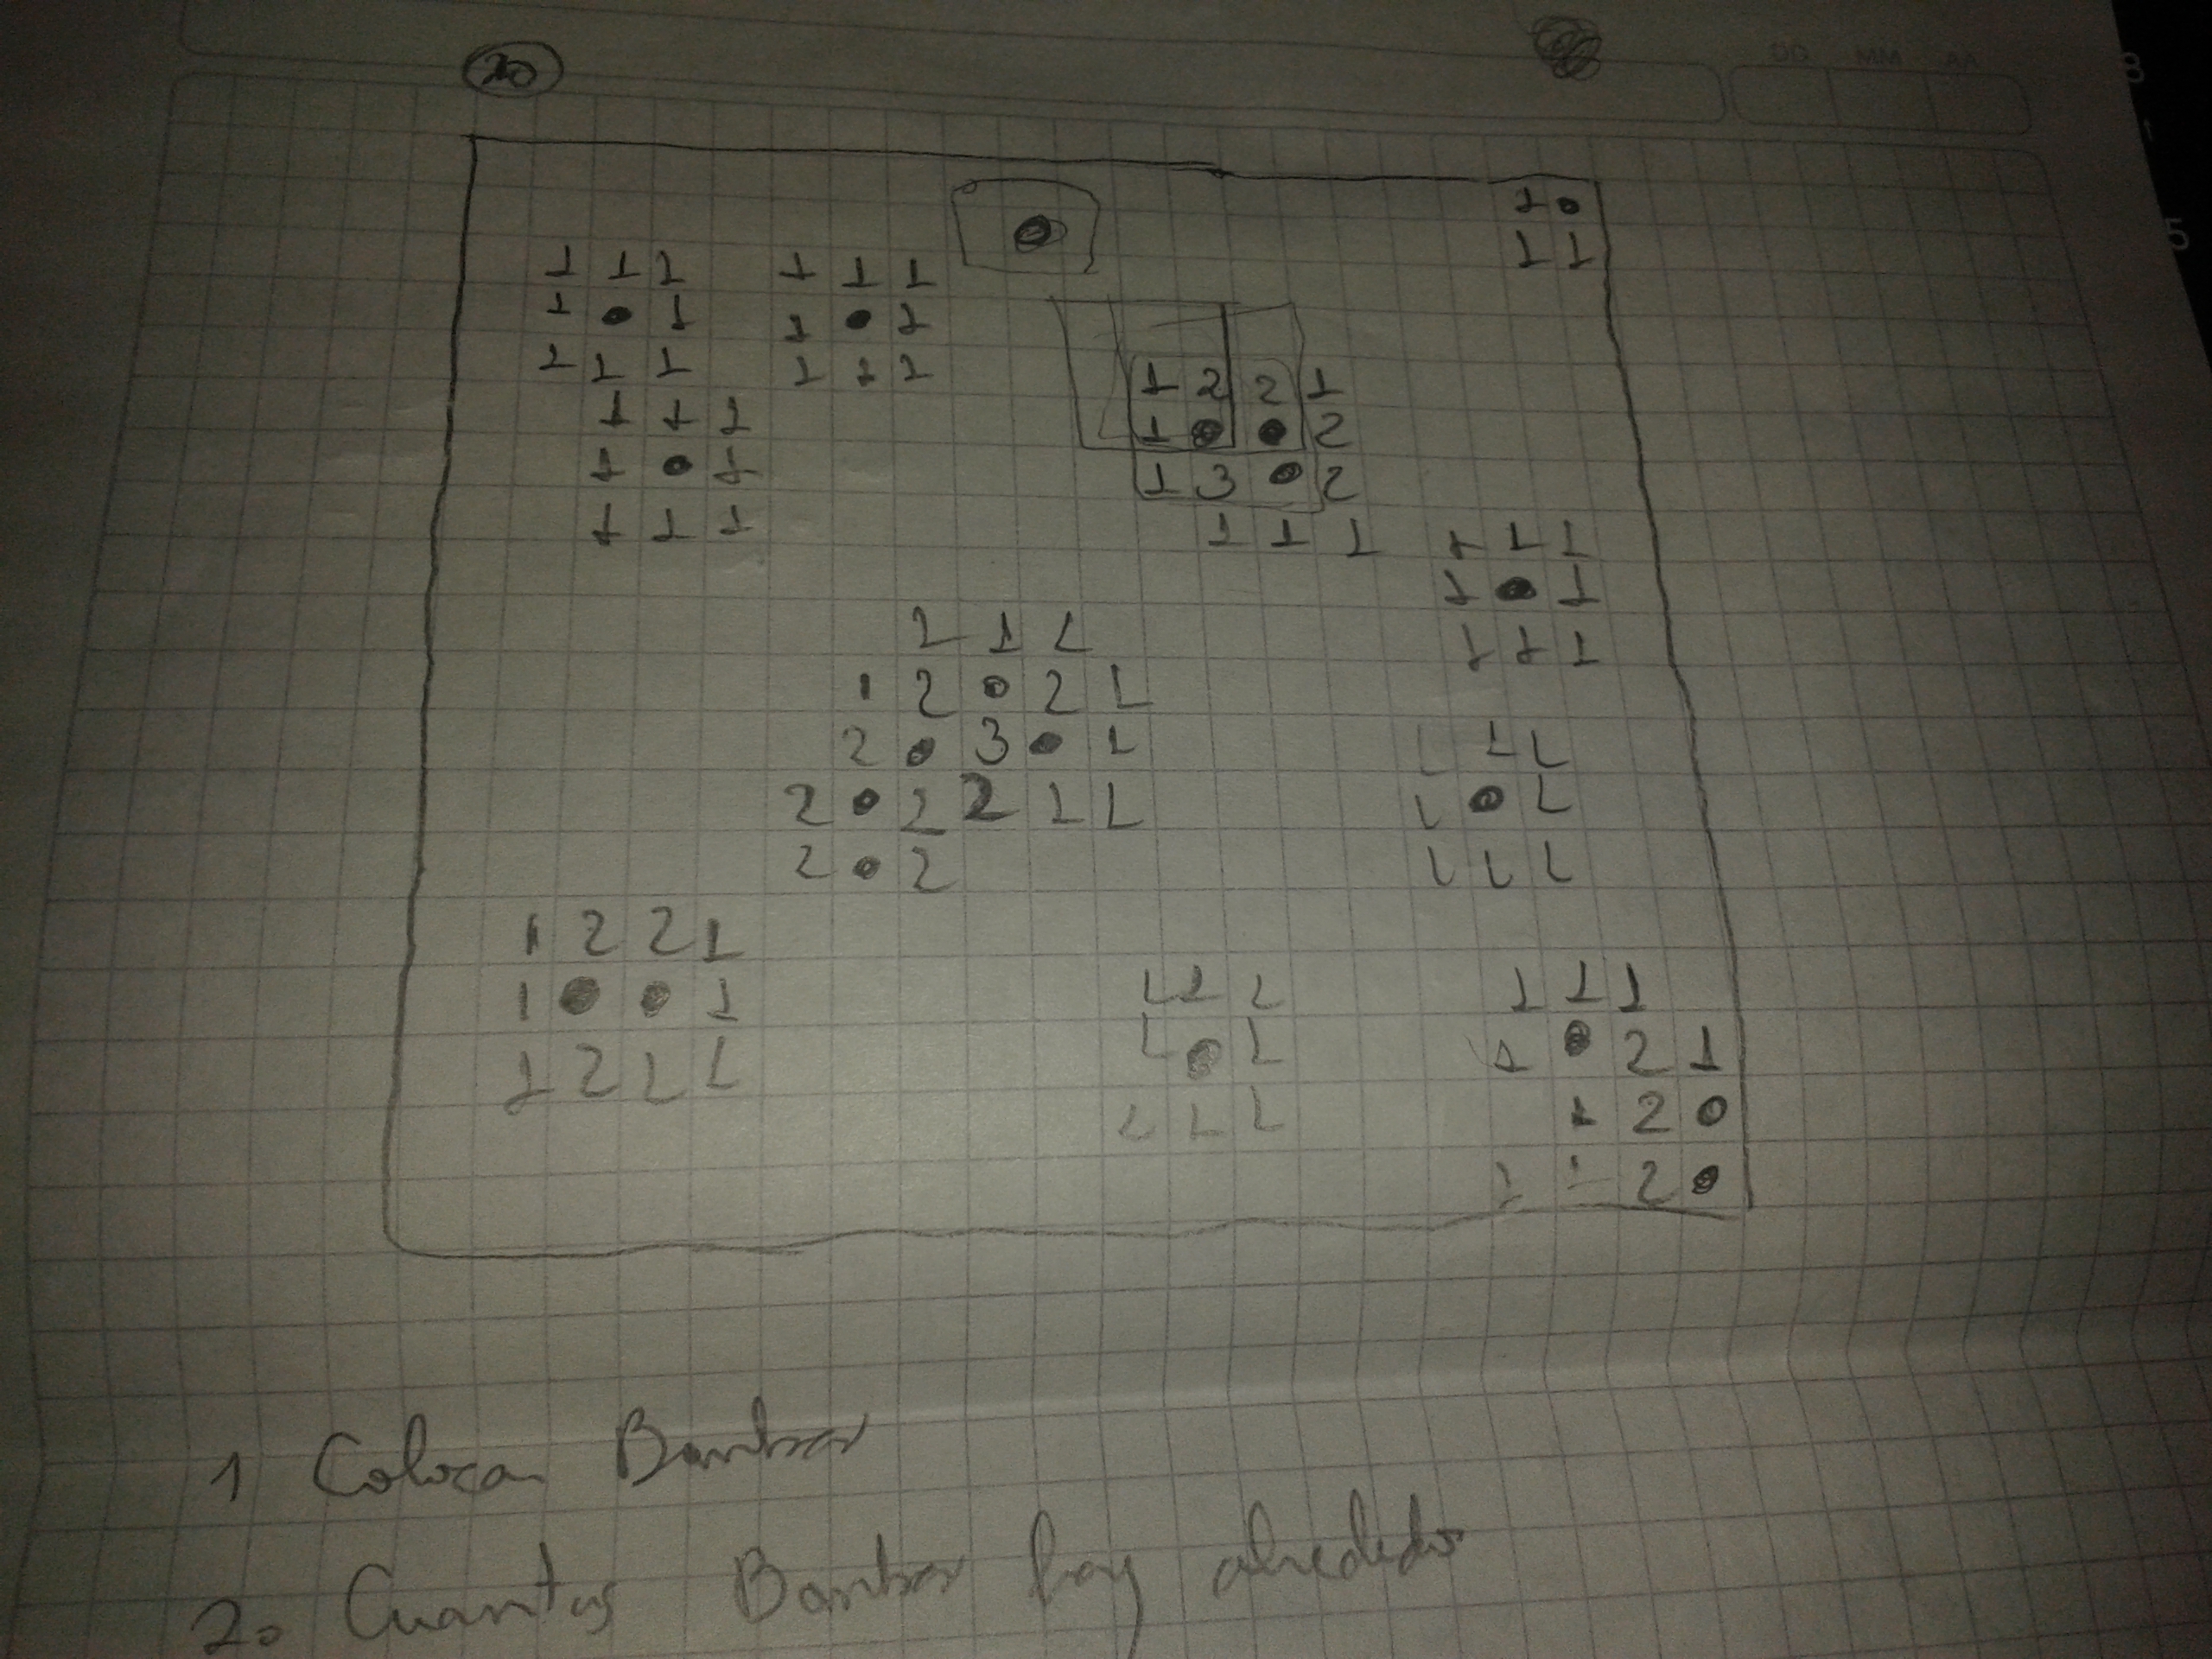 20
DD MM AA
8
5
1 •
1 1
1 1 1 1 1 1
1 • 1 1 • 1
1 1 1 1 1 1
1 2 2 1
1 1 1
1 • • 2
1 • 1
1 3 • 2
1 1 1
1 1 1
1 1 1
1 • 1
1 1 1
1 1 1
1 2 • 2 1
2 • 3 • 1
1 1 1
2 • 2 2 1 1
1 • 1
2 • 2
1 1 1
1 2 2 1
1 1 1
1 1 1
1 • • 1
1 • 1
1 • 2 1
1 2 1 1
1 1 1
1 2 0
1 1 2 •
1 Colocar Bombas
2. Cuantas Bombas hay alrededor